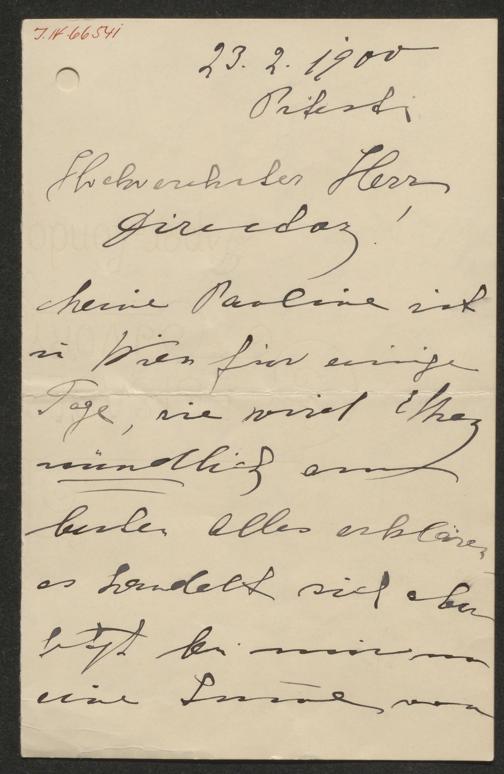 J.N. 66541
23. 2. 1900
Pitesti
Hochverehrter Herr
Director!
Meine Pauline ist
in Wien für einige
Tage, sie wird Ihnen
mündlich am
besten Alles erklären,
es handelt sich eben
jetzt bei mir um
eine Summe von